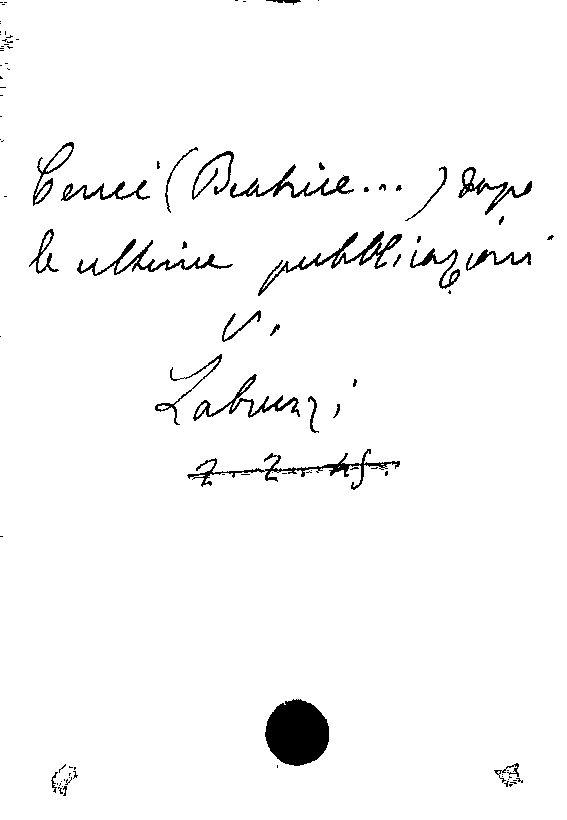 Cenci (Beatrice...) dopo
le ultime pubblicazioni
V.
Labruzzi
2.2.45.